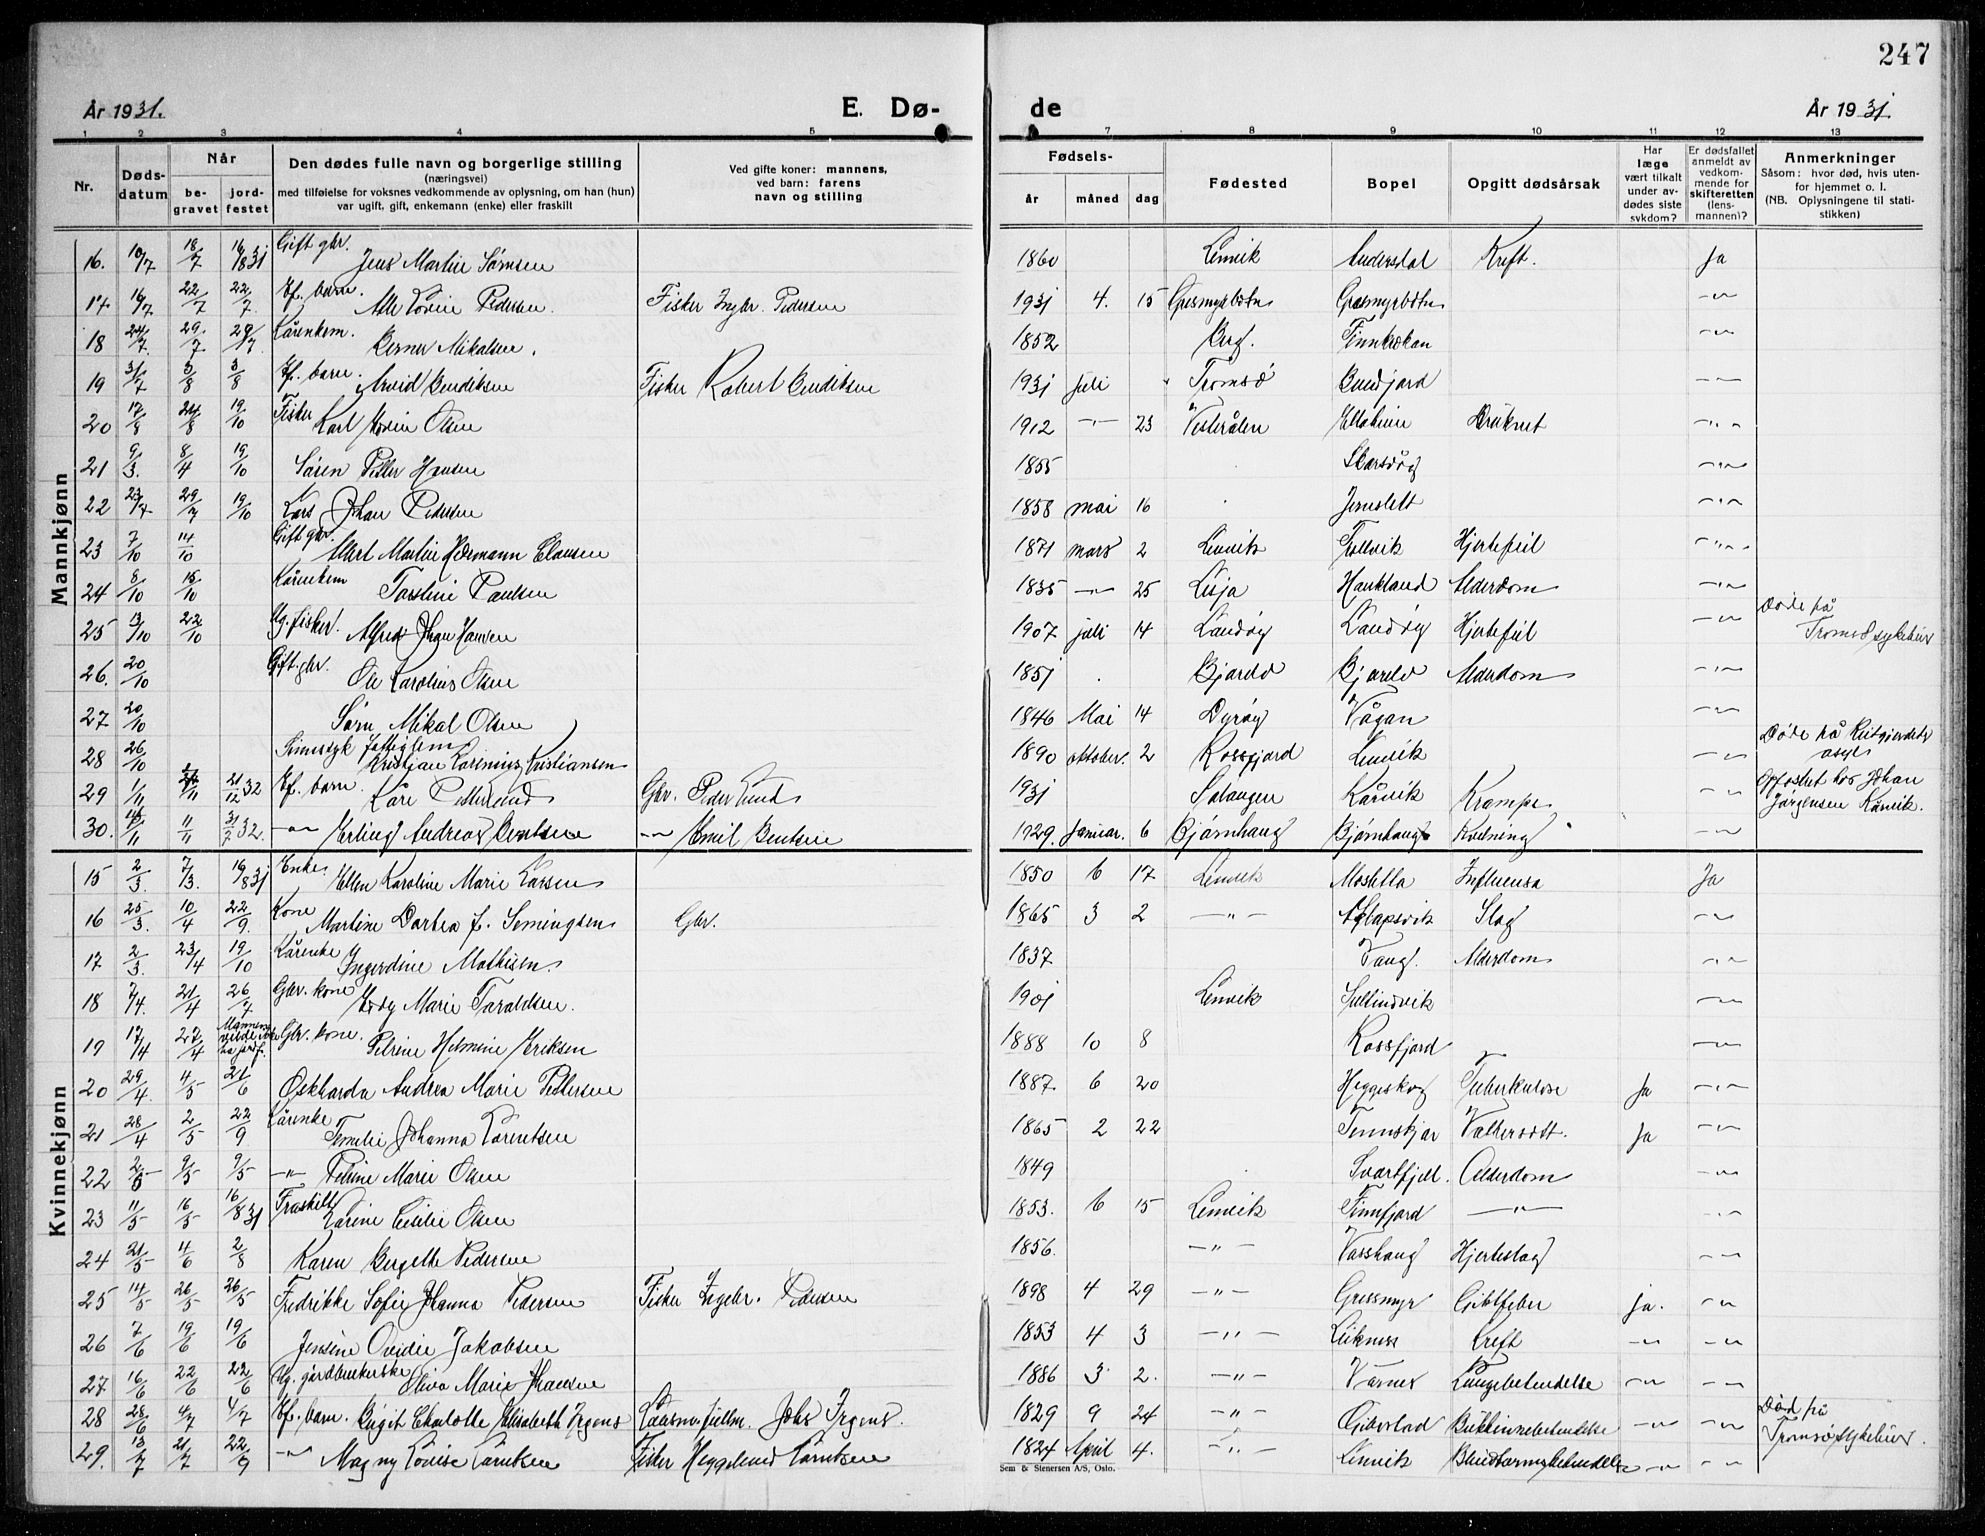 247
År 1931.
E. Dø-
de
År 1931
1 2 3 4 5 7 8 9 10 11 12 13
Nr.
Døds-
datum
Når
be-
gravet
jord-
festet
Den dødes fulle navn og borgerlige stilling
(næringsvei)
med tilføielse for voksnes vedkommende av oplysning, om han (hun)
var ugift, gift, enkemann (enke) eller fraskilt
Ved gifte koner: mannens,
ved barn: farens
navn og stilling
Fødsels-
år måned dag
Fødested
Bopel
Opgitt dødsårsak
Har
læge
vært tilkalt
under av-
dødes siste
sykdom?
Er dødsfallet
anmeldt av
vedkom-
mende for
skifteretten
(lens-
mannen)?
Anmerkninger
Såsom: hvor død, hvis uten-
for hjemmet o. l.
(NB. Oplysningene til stati-
stikken)
Mannkjønn
16. 10/7 18/7 16/8 31 Gift gbr. Jens Martin Sørnsen 1860 Lenvik Andersdal Kreft. Ja
17 16/7 22/7 22/7 Ef. barn. Pedersen. Fisker Ingbr. Pedersen 1931 4. 15 Gresmyrbotn Gresmyrbotn -"-
18 24/7. 29/7 29/7. Kårenkem. Berner Mikalsen. 1852 Berg. Finnkrokan -"-
19 31/7 3/8 3/8 Ef. barn. Arvid Bendiksen Fisker Robert Bendiksen 1931 juli Tromsø -"-
20 17/8 24/8 19/10 Fisker Karl Olsen 1912 -"- 23 Vesterålen Druknet -"-
21 9/3. 8/4 19/10 Søren Petter Hansen 1855 Skarsvåg -"-
22 23/7 29/7 19/10 Lars Johan Pedersen 1858 mai 16 -"-
23 7/10 14/10 Gift gbr. Martin Hermann Clausen 1871 mars 2 Lenvik Trollvik Hjertefeil -"-
24 8/10 15/10 Kårenkem Paulsen 1835 -"- 25 Lesja Haukland Alderdom -"-
25 13/10 22/10 Ug. fisker. Alfred Johan Hansen 1907 juli 14 Sandøy Sandøy Hjertefeil -"- Døde på Tromsø sykehus
26. 20/10 Gift gbr. Ole Karolius Olsen 1851 Bjorelv Bjorelv Alderdom -"-
27 20/10 Sørn Mikal Olsen 1846 Mai 14 Dyrøy Vågan -"-
28 26/10 Sinnssyk fattiglem Kristian Kristiansen 1890 oktober. 2 Rossfjord Lenvik -"- Døde på asyl
29 1/11 /11 21/12 32 Ef. barn. Kåre Petter Lund Gbr. Peder Lund 1931 Salangen Kårvik Krampe -"- Opfostret hos Johan Jørgensen Kårvik.
30. /11 11/11 31/7 32. -"- Erling Andreas Bentsen -"- Emil Bentsen 1929. Januar. 6 Bjørnhaug Bjørnhaug Kvelning -"-
Kvinnekjønn
15 2/3 7/3. 16/8 31 Enke Ellen Karoline Marie Larsen 1850 6 17 Lenvik Mostella Influensa Ja
16 25/3. 10/4 22/9. Kone Martine Dortea f. Simingsen Gbr. 1865 3 2 -"- Aglapsvik Slag -"-
17 2/3. 23/4 19/10 Kårenke Ingerdine Mathisen 1837 Vang. Alderdom -"-
18 7/4. 21/4 26/7 Gbr. kone Marie Taraldsen. 1901 Lenvik -"-
19 17/4 27/4 Mannen vilde ikke ha jordf. Gbr. kone. Petrine Helmine Eriksen 1888 10 8 Rossfjord -"-
20 29/4. 4/5 21/6 Oskharda Andrea Marie Pettersen 1887. 6 20 Heggeskog Tuberkulose Ja -"-
21 28/4 2/5 22/9 Kårenke Johanna Lorentsen 1865 2 22 Tennskjær Vattersott. Ja -"-
22 2/5 9/5 9/5 -"- Petrine Marie Olsen 1849 Svartfjell. Alderdom -"-
23 11/5 16/5 16/8 31 Fraskilt Karine Cecilie Olsen 1853. 6 15 Lenvik Finnfjord -"- -"-
24 21/5 4/6 2/8 Karen Bergitte Pedersen 1856. -"- Vasshaug Hjerteslag -"-
25 14/5 26/5 26/5 Fredrikke Sofie Johanna Pedersen Fisker Ingebr. Pedersen 1898 4 29 -"- Gressmyr Giktfeber ja. -"-
26 7/6 19/6 19/6 Jensine Ovidie Jakobsen 1853 4 3 -"- Leiknes Kreft -"- -"-
27. 16/6 22/6 22/6 Ug. gårdbrukerske Oliva Marie Hansen 1886 3 2. -"- Lungebetendelse -"- -"-
28 28/6 4/7 4/7 Ef. barn. Birgit Charlotte Elisabeth Irgens Johs Irgens. 1829 9 24 -"- Gibostad Bukhinnebetendelse -"- -"- Død på Tromsø sykehus.
29. 13/7 21/7 22/9 -"- Magny Lovise Lorntsen Fisker Heggelund Lorntsen 1824 April 4. -"- Lenvik Blindtarmsbetendelse -"- -"-
Sem & Stenersen A/S, Oslo.